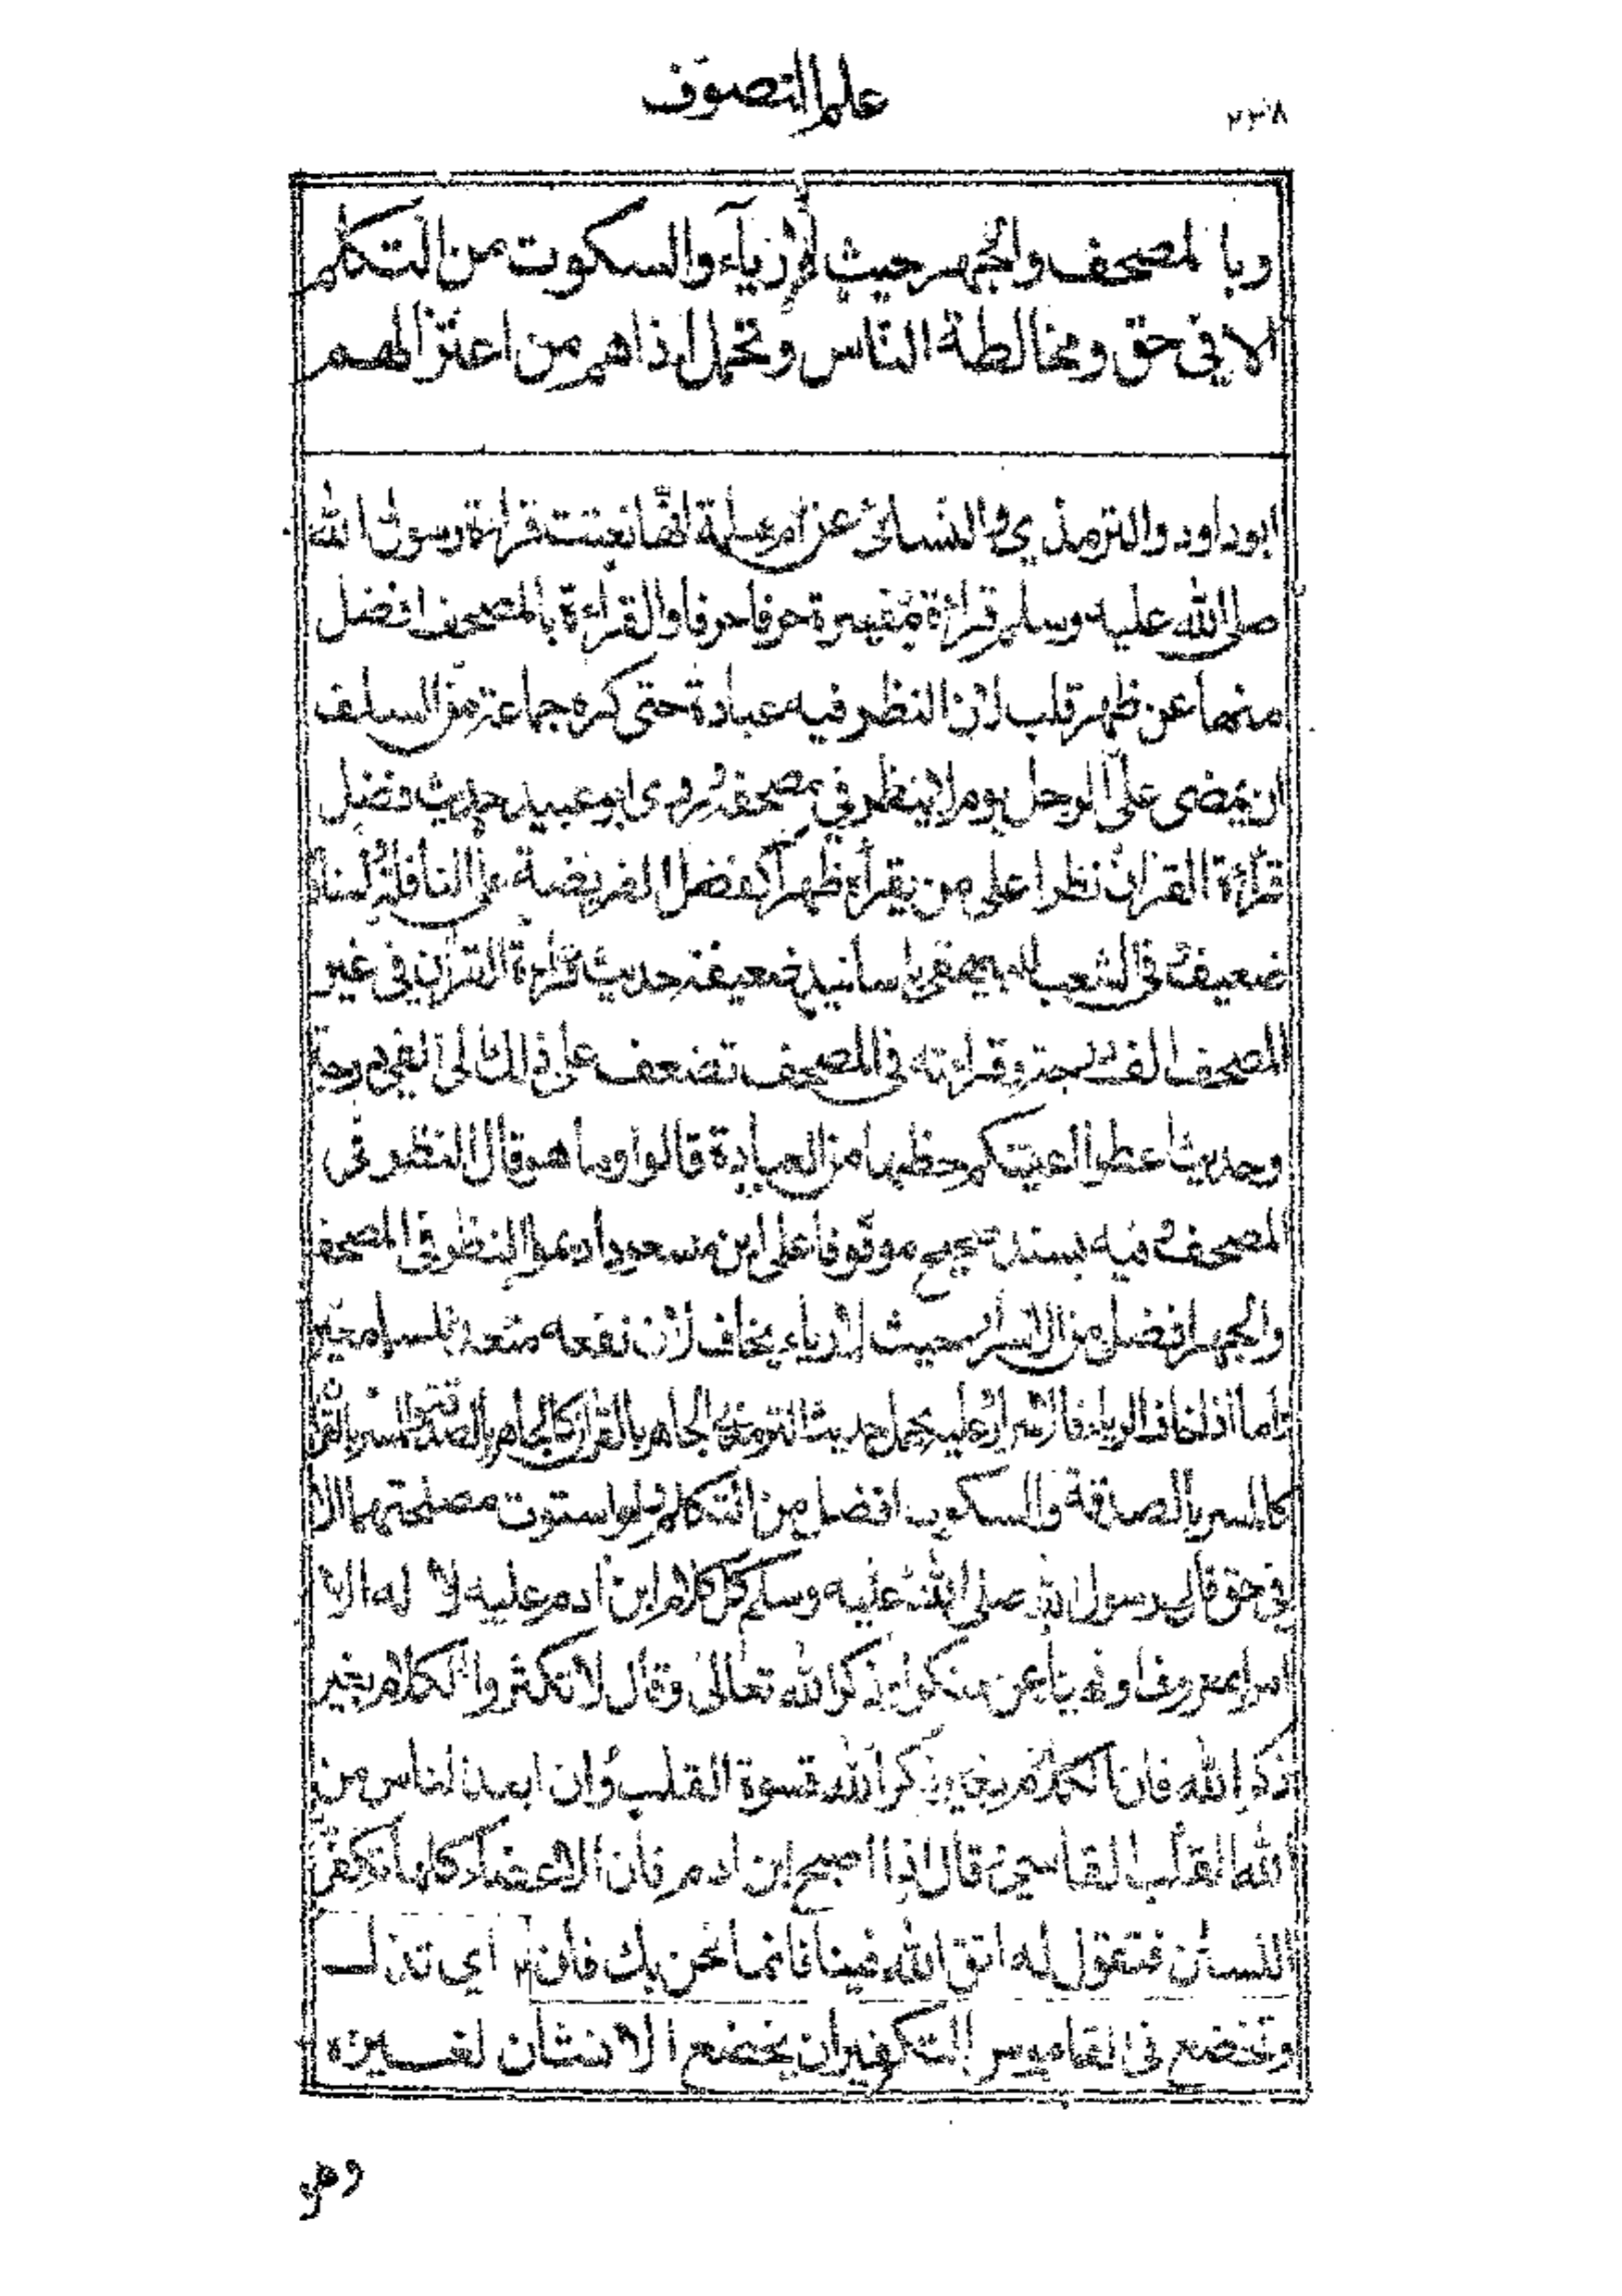 علم التصوف
٢٣٨
وبالمصحف والجهر حيث لا رياء والسكوت من التكلم
الا في حق ومخالطة الناس وتحمل اذاهم من اعتزالهم
ابو داود والترمذي والنسائي عن ام سلمة انها نعتت قراءة رسول الله
صلى الله عليه وسلم قراءة مفسرة حرفا حرفا والقراءة بالمصحف افضل
منها عن ظهر قلب لان النظر فيه عبادة حتى كره جماعة من السلف
ان يمضى على الرجل يوم لا ينظر في مصحفه وروى ابو عبيد حديث فضل
قراءة القرآن نظرا على من يقرأه ظهرا كفضل الفريضة على النافلة
ضعيف وفي الشعب للبيهقي باسانيد ضعيفة حديث قراءة القرآن في غير
المصحف الف درجة وقراءته في المصحف تضعف على ذلك الى الفي درجة
وحديث اعطوا اعينكم حظها من العبادة قالوا وما هو قال النظر في
المصحف وفيه بسند صحيح موقوفا على ابن مسعود اديموا النظر في المصحف
والجهر افضل من الاسرار حيث لا رياء يخاف لان نفعه متعد للسامعين
اما اذا خاف الرياء فالاسرار وعليه يحمل حديث الترمذي الجاهر بالقرآن كالجاهر بالصدقة والمسر بالقرآن
كالمسر بالصدقة والسكوت افضل من التكلم ولو استوت مصلحتهما الا
في حق قال رسول الله صلى الله عليه وسلم كل كلام ابن ادم عليه لا له الا
امرا بمعروف او نهيا عن منكر او ذكر الله تعالى وقال لا تكثروا الكلام بغير
ذكر الله فان الكلام بغير ذكر الله قسوة القلب وان ابعد الناس من
الله القلب القاسي وقال اذا اصبح ابن ادم فان الاعضاء كلها تكفر
اللسان فتقول له اتق الله فينا فانما نحن بك فان اي تذل
وتخضع في القاموس التكفير ان يخضع الانسان لغيره
وهو